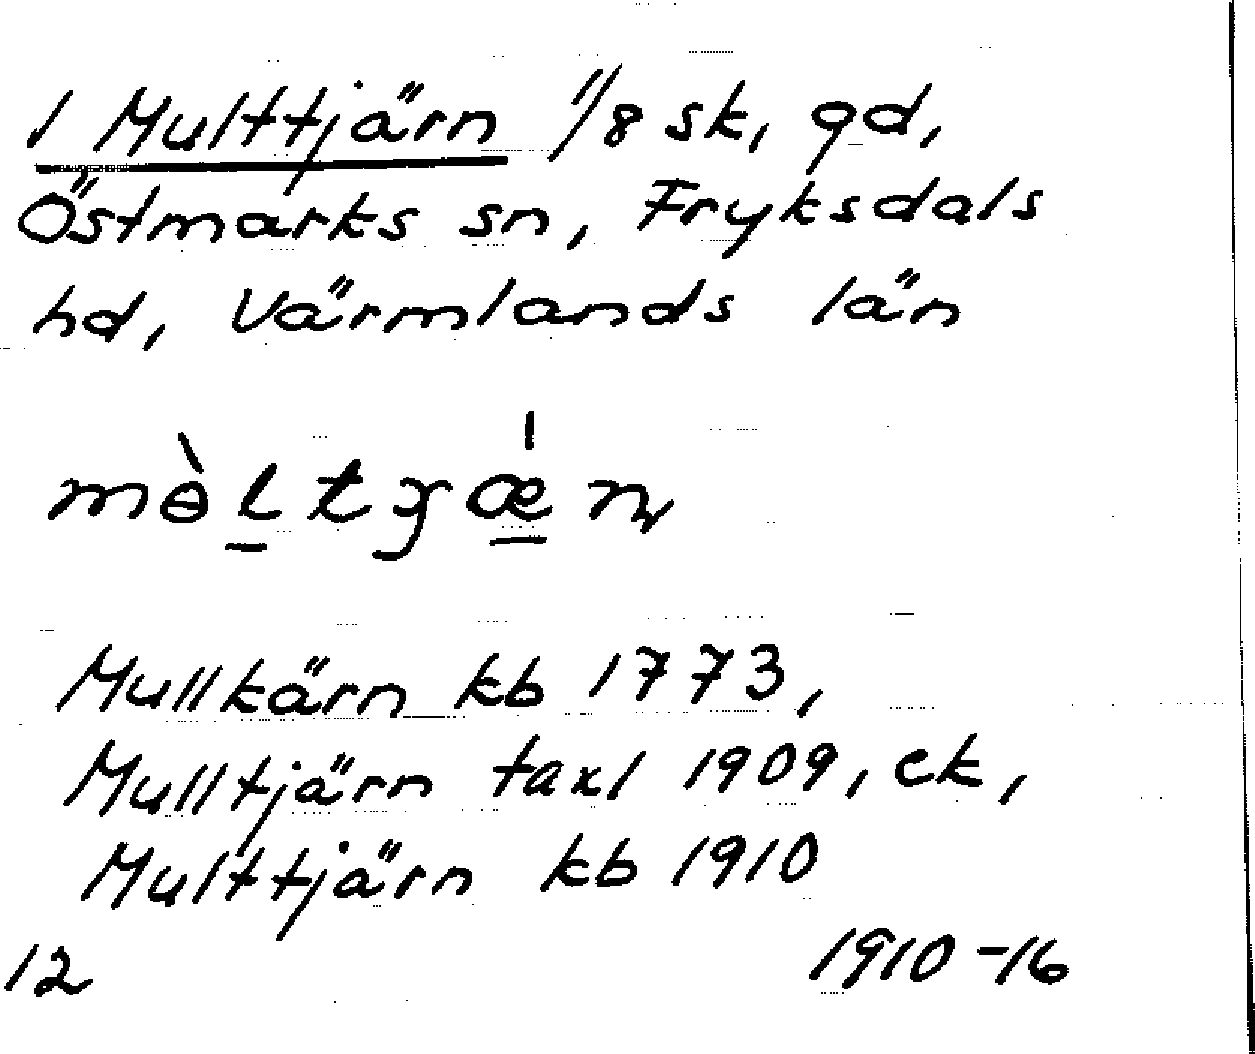 1 Multtjärn 1/8 sk, gd,
Östmarks sn, Fryksdals
hd, Värmlands län
Mullkärn kb 1773,
Mulltjärn taxl 1909, ek,
Multtjärn kb 1910
12 1910-16